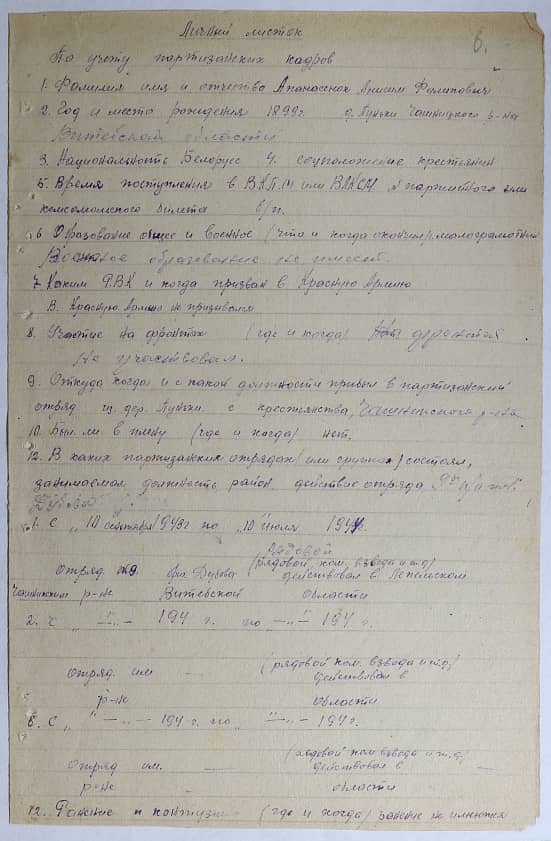 6.
Личный листок
По учету партизанских кадров
1. Фамилия имя и отчество Апанасенок Анисим Филипович
2. Год и место рождения 1899г. д. Луньки Чашницкого р-на
Витебской области
3. Национальность Белорус 4. соцположение крестьянин
5. Время поступления в В.К.П.(б) или ВЛКСМ № партийного или
комсомольского билета б/п.
6 Образование общее и военное (что и когда окончил) малограмотный
Военное образование не имеет.
7 Каким Р.В.К и когда призван в Красную Армию
В. Красную Армию не призывался
8. Участие на фронтах (где и когда)
не участвовал.
9. Откуда когда и с какой должности прибыл в партизанский
отряд дер. Луньки. с крестьянства, Чашницкого р-на
10. Был ли в плену (где и когда) нет.
12. В каких партизанских отрядах (или группах) состоял,
занимаемая должность район действие отряда
Дубова
1. С „10 сентября 1943г по „10" июля 1944.
Рядовой
Отряд бриг. Дубова (рядовой, ком. взвода и т.д) действовал в Лепельском
Чашникским р-не Витебской области
2. С „ — „ — 194 г. по — „ — 194 г.
Отряд им — (рядовой ком. взвода и т.д) действовал в
р-не области
С „ — „ — 194 г. по „ — „ — 194 г.
Отряд им. — (рядовой ком взвода и т.д) действовал в —
р-не области
12. Ранение и контузия — (где и когда) ранение не имеются